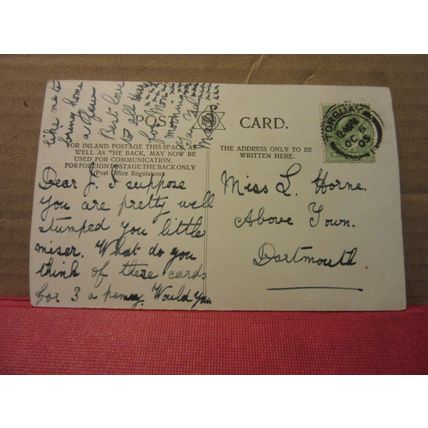 like me to
bring home
a few
Best love
to all three
for Mon
morning
POST CARD.
FOR INLAND POSTAGE THIS SPACE, AS
WELL AS THE BACK, MAY NOW BE
USED FOR COMMUNICATION.
FOR FOREIGN POSTAGE THE BACK ONLY
(Post Office Regulation).
THE ADDRESS ONLY TO BE
WRITTEN HERE.
TORQUAY
OC 6
05
Dear J. I suppose
you are pretty well
stumped you little
miser. What do you
think of these cards
for 3 a penny. Would you
Miss L. Horne.
Above Town.
Dartmouth.